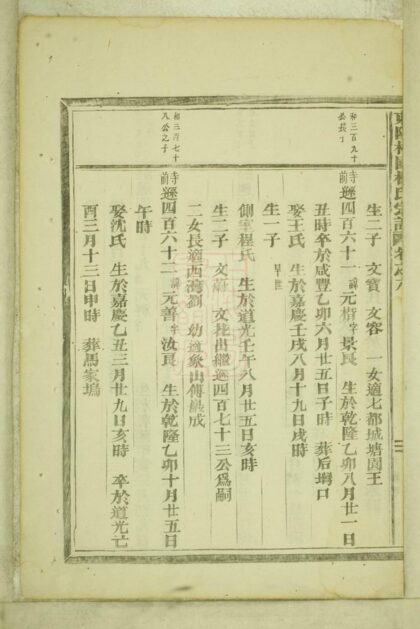 生二子 文寳 文容 一女適七都城塘園王
和三百九十
公長子
寺前遜四百六十一諱元楷字景良 生於乾隆乙卯八月廿一日
丑時卒於咸豐乙卯六月廿五日子時 葬后塘口
娶王氏 生於嘉慶壬戌八月十九日戌時
生一子 早世
側室程氏 生於道光壬午八月廿五日亥時
生二子 文蔚 文桂出繼遜四百七十三公爲嗣
二女長適西灣劉 幼適象山傅嶽成
和三百七十
八公之子
寺前遜四百六十二諱元善字汝良 生於乾隆乙卯十月廿五日
午時
娶沈氏 生於嘉慶乙丑三月廿九日亥時 卒於道光丁
酉三月十三日申時 葬馬家塢